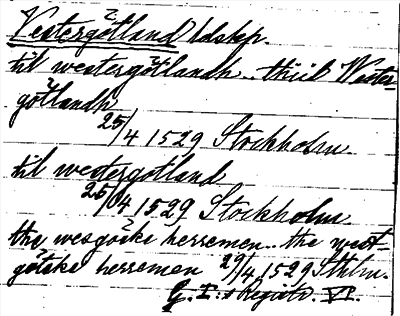 Vestergötland ldskp.
til westergötlandh.. thiil Vester-
götlandh
25/4 1529 Stockholm
til westergotland
25/4 1529 Stockholm
the wesgöske herremen.. the west-
götske herremen 29/4 1529 Sthlm.
G. I:s Registr. VI.